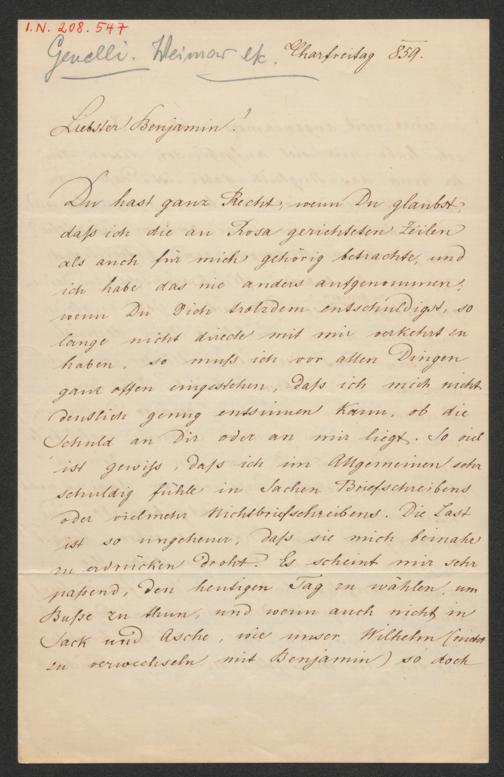 I.N. 208.547
Genelli. Weimar etc.
Charfreitag 859.
Liebster Benjamin!
Du hast ganz Recht, wenn Du glaubst,
daß ich die an Rosa gerichteten Zeilen
als auch für mich gehörig betrachte, und
ich habe das nie anders aufgenommen,
wenn Du Dich trotzdem entschuldigst, so
lange nicht direkt mit mir verkehrt zu
haben, so muß ich vor allen Dingen
ganz offen eingestehen, daß ich mich nicht
deutlich genug entsinnen kann, ob die
Schuld an Dir oder an mir liegt. So viel
ist gewiß, daß ich im Allgemeinen sehr
schuldig fühle in Sachen Briefschreibens
oder vielmehr Nichtbriefschreibens. Die Last
ist so ungeheuer, daß sie mich beinahe
zu erdrücken droht. Es scheint mir sehr
paßend, den heutigen Tag zu wählen, um
Buße zu thun, und wenn auch nicht in
Sack und Asche, wie unser Wilhelm
zu verwechseln mit Benjamin) so doch